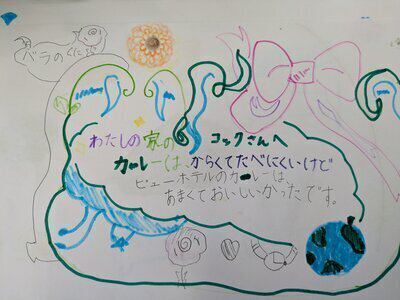 バラのくにより
わたしの家の コックさんへ
カレーは、からくてたべにくいけど
ビューホテルのカレーは
あまくておいしいかったです。